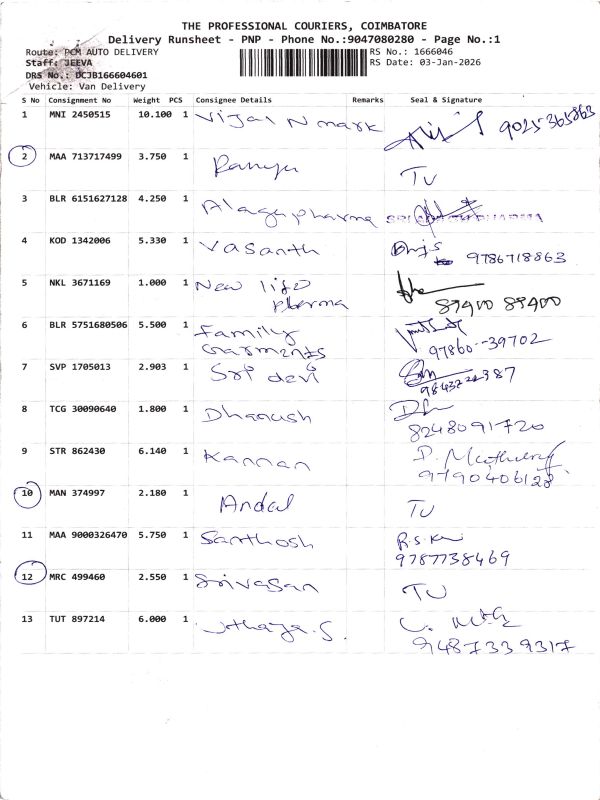 THE PROFESSIONAL COURIERS, COIMBATORE
Delivery Runsheet - PNP - Phone No.:9047080280 - Page No.:1
Route: PCM AUTO DELIVERY RS No.: 1666046
Staff: JEEVA RS Date: 03-Jan-2026
DRS No.: DCJB166604601
Vehicle: Van Delivery
S No Consignment No Weight PCS Consignee Details Remarks Seal & Signature
1 MNI 2450515 10.100 1 Vijai N mark 9025365863
2 MAA 713717499 3.750 1 Ramya TU
3 BLR 6151627128 4.250 1 Alagu pharma
4 KOD 1342006 5.330 1 Vasanth
9786718863
5 NKL 3671169 1.000 1 New life
pharma 89400 89400
6 BLR 5751680506 5.500 1 Family
Garments 97860--39702
7 SVP 1705013 2.903 1 Sri devi
8 TCG 30090640 1.800 1 Dhanush
8248091720
9 STR 862430 6.140 1 Kannan
9790406128
10 MAN 374997 2.180 1 Andal TU
11 MAA 9000326470 5.750 1 Santhosh
9787738469
12 MRC 499460 2.550 1 Srivasan TU
13 TUT 897214 6.000 1 Uthaya.S.
9487339317